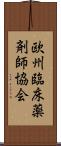 欧州臨床薬
剤師協会